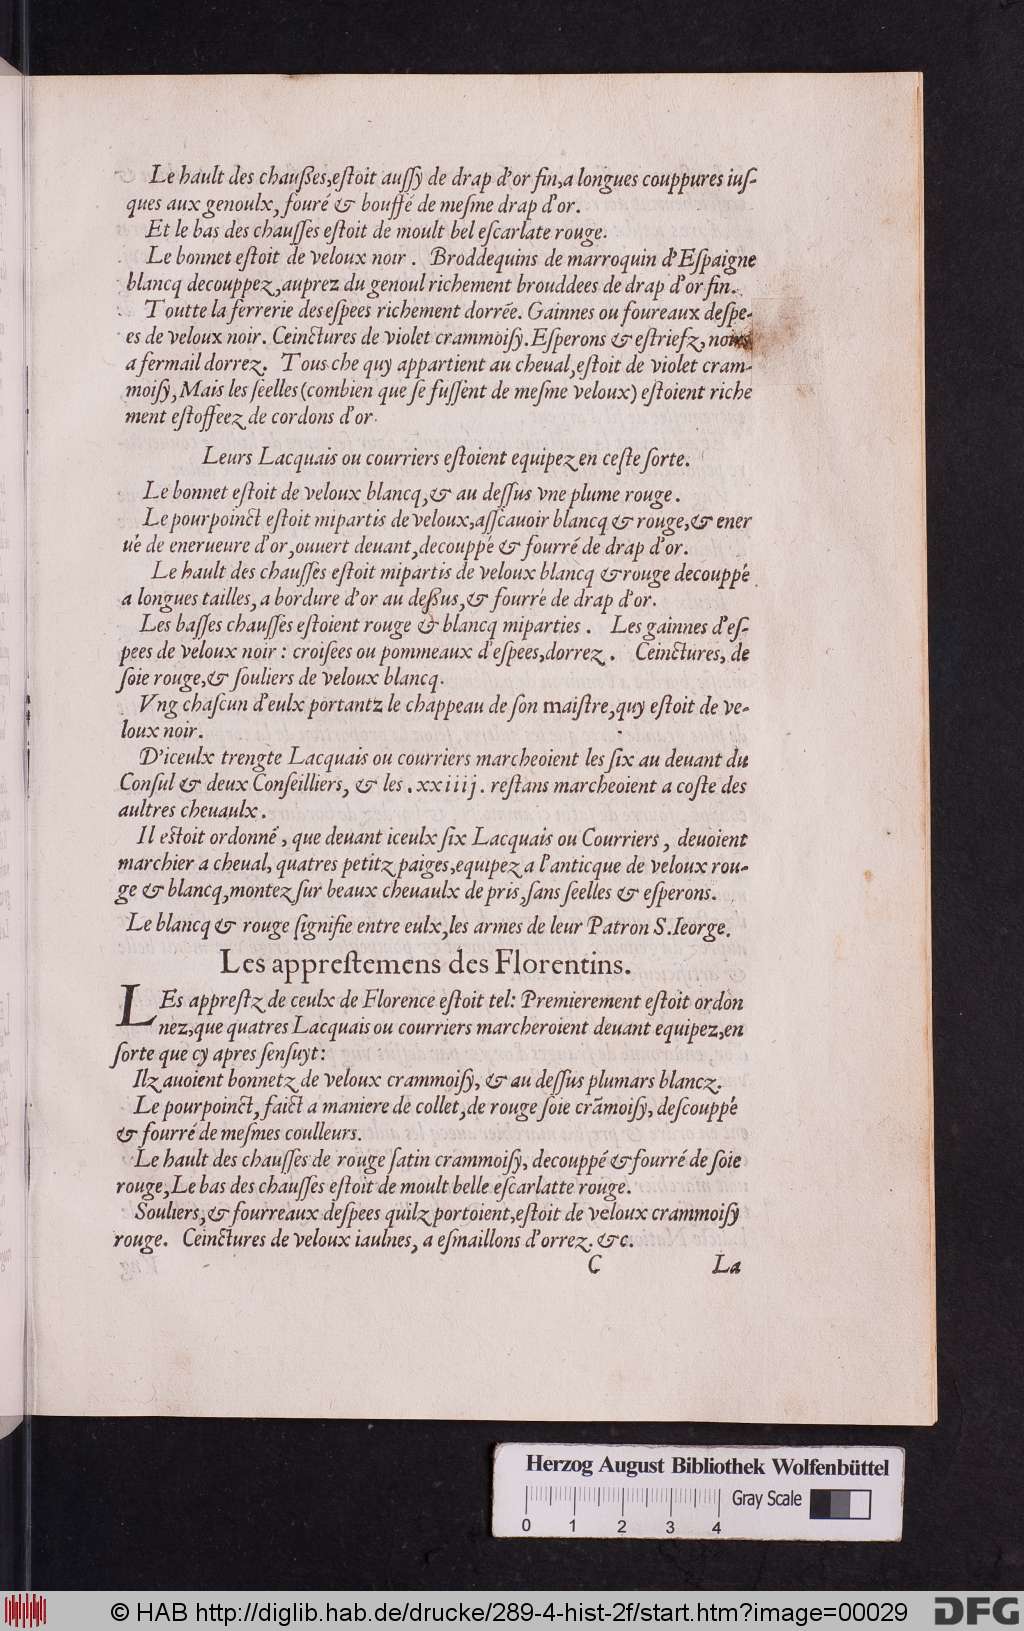 Le hault des chauſſes,eſtoit auſſy de drap d'or fin,a longues couppures iuſ-
ques aux genoulx, fouré & bouffé de meſme drap d'or.
Et le bas des chauſſes eſtoit de moult bel eſcarlate rouge.
Le bonnet eſtoit de veloux noir. Broddequins de marroquin d'Eſpaigne
blancq decouppez,auprez du genoul richement brouddees de drap d'or fin.
Toutte la ferrerie des eſpees richement dorrẽe. Gainnes ou foureaux deſpe-
es de veloux noir. Ceinctures de violet crammoiſy. Eſperons & eſtriefz, noirs
a fermail dorrez. Tous che quy appartient au cheual,eſtoit de violet cram-
moiſy, Mais les ſeelles (combien que ſe fuſſent de meſme veloux) eſtoient riche
ment eſtoffeez de cordons d'or.
Leurs Lacquais ou courriers eſtoient equipez en ceſte ſorte.
Le bonnet eſtoit de veloux blancq,& au deſſus vne plume rouge.
Le pourpoinct eſtoit mipartis de veloux,aſſcauoir blancq & rouge,& ener
ué de enerueure d'or,ouuert deuant,decouppé & fourré de drap d'or.
Le hault des chauſſes eſtoit mipartis de veloux blancq & rouge decouppé
a longues tailles, a bordure d'or au deſſus,& fourré de drap d'or.
Les baſſes chauſſes eſtoient rouge & blancq miparties. Les gainnes d'eſ-
pees de veloux noir : croiſees ou pommeaux d'eſpees,dorrez. Ceinctures, de
ſoie rouge,& ſouliers de veloux blancq.
Vng chaſcun d'eulx portantz le chappeau de ſon maiſtre,quy eſtoit de ve-
loux noir.
D'iceulx trengte Lacquais ou courriers marcheoient les ſix au deuant du
Conſul & deux Conſeilliers, & les .xxiiij. reſtans marcheoient a coſte des
aultres cheuaulx.
Il eſtoit ordonné, que deuant iceulx ſix Lacquais ou Courriers, deuoient
marchier a cheual, quatres petitz paiges,equipez a l'anticque de veloux rou-
ge & blancq,montez ſur beaux cheuaulx de pris,ſans ſeelles & eſperons.
Le blancq & rouge ſignifie entre eulx,les armes de leur Patron S. Ieorge.
Les appreſtemens des Florentins.
LEs appreſtz de ceulx de Florence eſtoit tel: Premierement eſtoit ordon
nez,que quatres Lacquais ou courriers marcheroient deuant equipez,en
ſorte que cy apres ſenſuyt:
Ilz auoient bonnetz de veloux crammoiſy, & au deſſus plumars blancz.
Le pourpoinct, faict a maniere de collet,de rouge ſoie crãmoiſy, deſcouppé
& fourré de meſmes coulleurs.
Le hault des chauſſes de rouge ſatin crammoiſy, decouppé & fourré de ſoie
rouge, Le bas des chauſſes eſtoit de moult belle eſcarlatte rouge.
Souliers,& fourreaux deſpees quilz portoient,eſtoit de veloux crammoiſy
rouge. Ceinctures de veloux iaulnes, a eſmaillons d'orrez. &c.
C La
Herzog August Bibliothek Wolfenbüttel
Gray Scale
0 1 2 3 4
© HAB http://diglib.hab.de/drucke/289-4-hist-2f/start.htm?image=00029
DFG